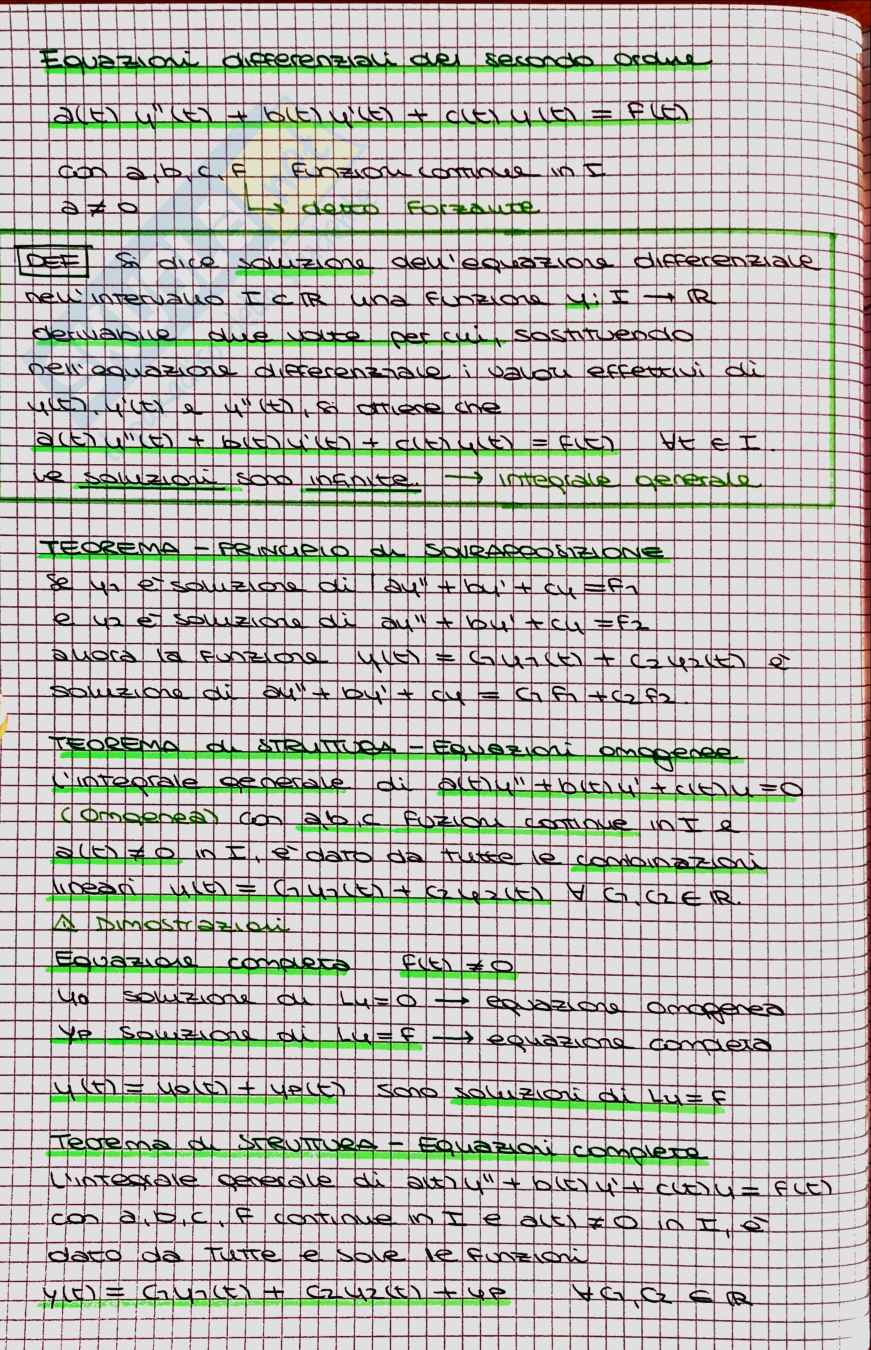 Equazioni differenziali del secondo ordine
a(t) y''(t) + b(t) y'(t) + c(t) y(t) = f(t)
con a, b, c, f funzioni continue in I
a ≠ 0 ↳ detto Forzante
DEF Si dice soluzione dell'equazione differenziale
nell'intervallo I ⊂ ℝ una funzione y: I → ℝ
derivabile due volte per cui, sostituendo
nell'equazione differenziale i valori effettivi di
y(t), y'(t) e y''(t), si ottiene che
a(t) y''(t) + b(t) y'(t) + c(t) y(t) = f(t) ∀t ∈ I.
Le soluzioni sono infinite. → integrale generale
TEOREMA - PRINCIPIO di SOVRAPPOSIZIONE
Se y1 è soluzione di ay'' + by' + cy = f1
e y2 è soluzione di ay'' + by' + cy = f2
allora la funzione y(t) = c1y1(t) + c2y2(t) è
soluzione di ay'' + by' + cy = c1f1 + c2f2.
TEOREMA di STRUTTURA - Equazioni omogenee
L'integrale generale di a(t)y'' + b(t)y' + c(t)y = 0
(Omogenea) con a,b,c fuzioni continue in I e
a(t) ≠ 0 in I, è dato da tutte le combinazioni
lineari y(t) = c1y1(t) + c2y2(t) ∀ c1, c2 ∈ ℝ.
⚠ Dimostrazioni
Equazione completa f(t) ≠ 0
y0 soluzione di Ly=0 → equazione omogenea
yp soluzione di Ly=f → equazione completa
y(t) = y0(t) + yp(t) sono soluzioni di Ly = f
Teorema di STRUTTURA - Equazioni complete
L'integrale generale di a(t)y'' + b(t)y' + c(t)y = f(t)
con a, b, c, f continue in I e a(t) ≠ 0 in I, è
dato da tutte e sole le funzioni
y(t) = c1y1(t) + c2y2(t) + yp ∀ c1, c2 ∈ ℝ